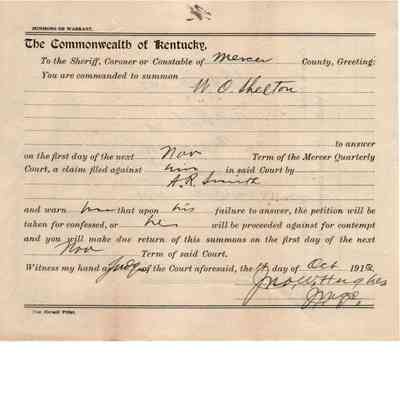 SUMMONS OR WARRANT.
The Commonwealth of Kentucky,
To the Sheriff, Coroner or Constable of Mercer County, Greeting:
You are commanded to summon
W. O. Shelton
to answer
on the first day of the next Nov Term of the Mercer Quarterly
Court, a claim filed against him in said Court by
A.R. Smith
and warn him that upon his failure to answer, the petition will be
taken for confessed, or he will be proceeded against for contempt
and you will make due return of this summons on the first day of the next
Nov Term of said Court.
Witness my hand as Judge of the Court aforesaid, the day of Oct 191
Jno. W. Hughes